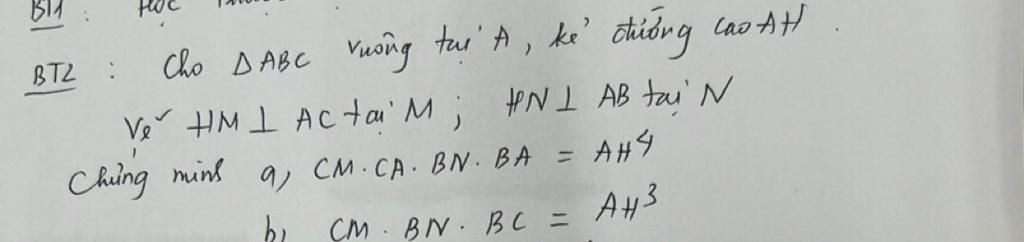 BT1 : Học
BT2 : Cho △ABC vuông tại A, kẻ đường cao AH.
Vẽ HM ⊥ AC tại M ; HN ⊥ AB tại N
Chứng minh a, CM.CA.BN.BA = AH⁴
b, CM.BN.BC = AH³